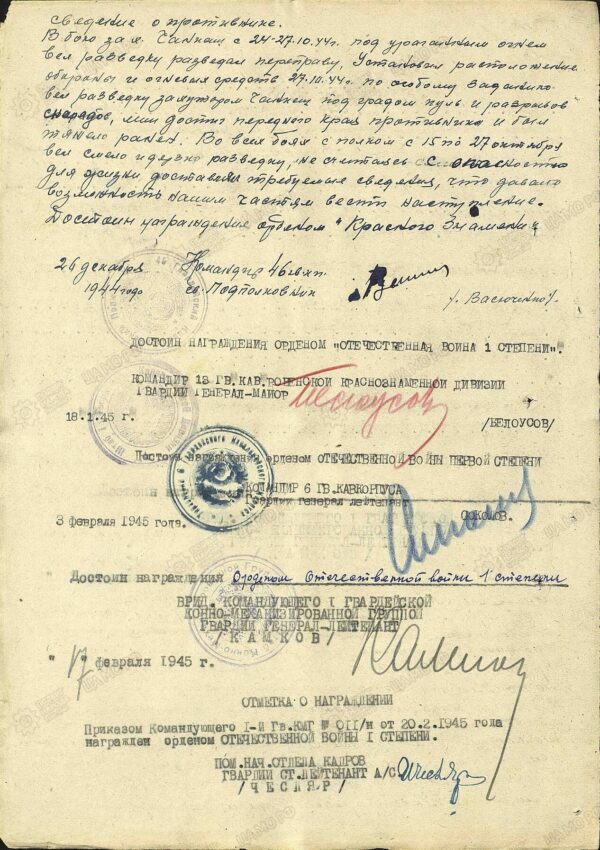 сведение о противнике.
В бою за м. Чанкащ с 24-27.10.44г. под ураганным огнем
вел разведку разведал переправу, Установил расположение
обороны и огневых средств 27.10.44г. по особому заданию
вел разведку за хутором Чанкещ под градом пуль и разрывов
снарядов, достиг передного края противника и был
тяжело ранен. Во всех боях с полком с 15 по 27 октября
вел смело и дерзко разведку, не считаясь с опасностью
для жизни доставлял требуемые сведения, что давало
возможность нашим частям вести наступление.
Достоин награждения орденом "Красного Знамени"
26 декабря Командир 46 гв кп
1944 года гв. Подполковник /Васюченко/.
ДОСТОИН НАГРАЖДЕНИЯ ОРДЕНОМ "ОТЕЧЕСТВЕННАЯ ВОИНА 1 СТЕПЕНИ".
КОМАНДИР 13 ГВ.КАВ.РОВЕНСКОЙ КРАСНОЗНАМЕННОЙ ДИВИЗИИ
ГВАРДИИ ГЕНЕРАЛ-МАИОР Белоусов
18.1.45 г. /БЕЛОУСОВ/
Достоин награждения орденом ОТЕЧЕСТВЕННОЙ ВОЙНЫ ПЕРВОЙ СТЕПЕНИ
КОМАНДИР 6 ГВ.КАВКОРПУСА
гвардии генерал лейтенант
3 февраля 1945 года. СОКОЛОВ.
Достоин награждения Орденом Отечественной войны 1 степени
ВРИД. КОМАНДУЮЩЕГО I ГВАРДЕЙСКОЙ
КОННО-МЕХАНИЗИРОВАННОЙ ГРУППОЙ
ГВАРДИИ ГЕНЕРАЛ-ЛЕЙТЕНАНТ
/КАМКОВ/ Камков
"17" февраля 1945 г.
ОТМЕТКА О НАГРАЖДЕНИИ
Приказом Командующего I-й Гв.КМГ № 011/н от 20.2.1945 года
награжден орденом ОТЕЧЕСТВЕННОЙ ВОЙНЫ I СТЕПЕНИ.
ПОМ.НАЧ.ОТДЕЛА КАДРОВ
ГВАРДИИ СТ.ЛЕЙТЕНАНТ А/С
/ЧЕСЛЯР/